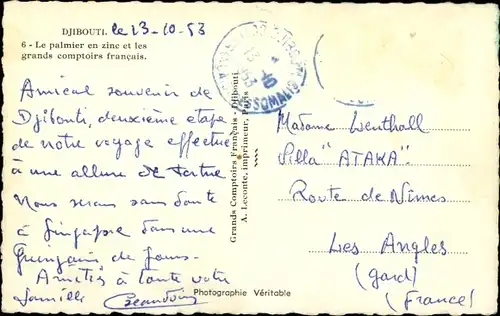 DJIBOUTI. le 23-10-53
6 - Le palmier en zinc et les
grands comptoirs français.
Amical souvenir de
Djibouti, deuxième étape
de notre voyage effectué
à une allure de tortue
Nous serons sans doute
à Singapore dans une
Quinzaine de jours.
Amitiés à toute votre
famille Beaudoin
Photographie Véritable
Grands Comptoirs Français - Djibouti.
A. Leconte, imprimeur, Paris
Madame Lenthall
Villa "ATAKA".
Route de Nîmes
Les Angles
(Gard)
(France)